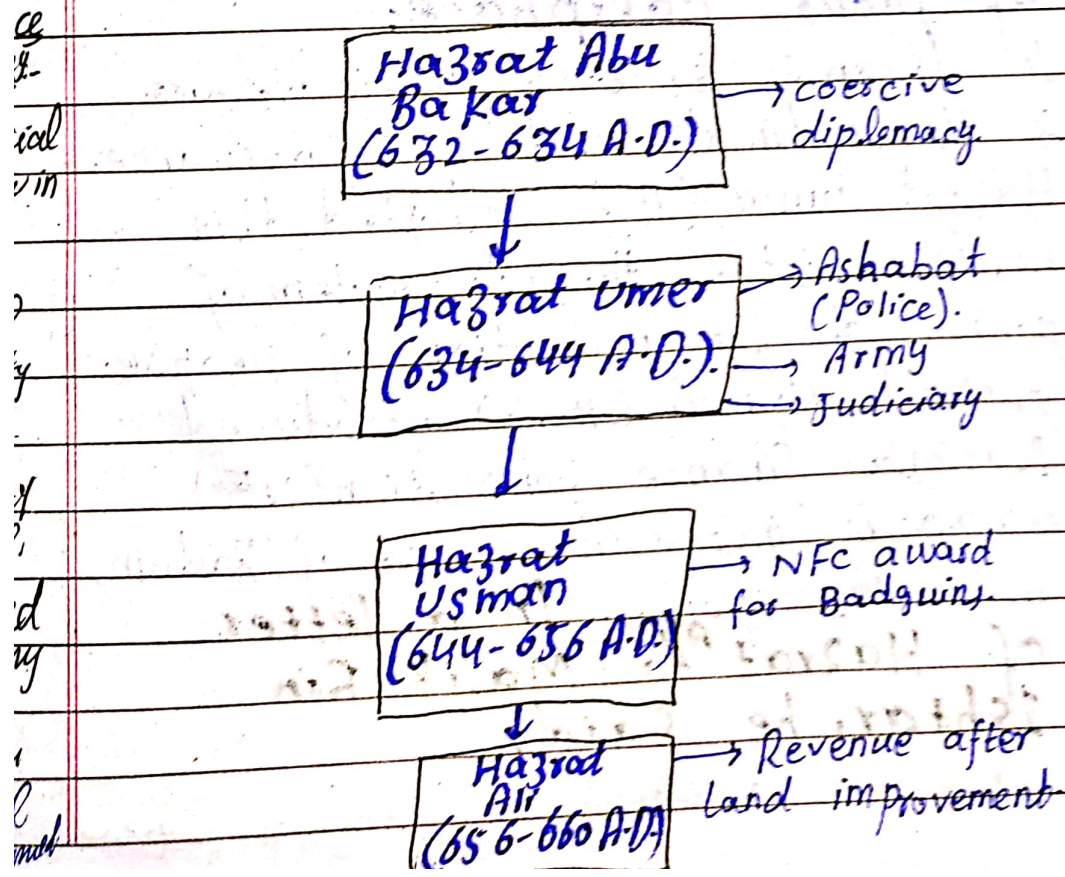 ce
y-
ial
in
y
y
d
ny
l
Hazrat Abu
Bakar
(632-634 A.D.)
→ coercive
diplomacy.
Hazrat Umer
(634-644 A.D.).
→ Ashabat
(Police).
→ Army
→ Judiciary
Hazrat
Usman
(644-656 A.D.)
→ NFC award
for Badguins.
Hazrad
Ali
(656-660 A.D)
→ Revenue after
land improvement